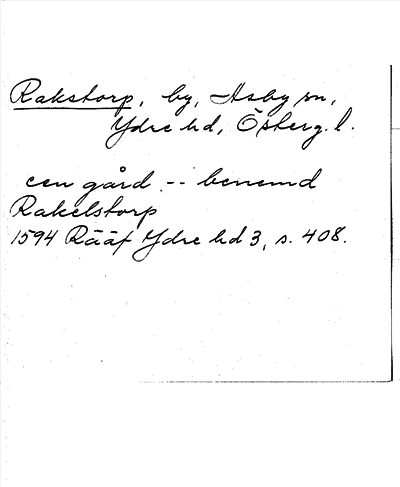 Rakstorp, by, Asby sn,
Ydre hd, Österg. l.
een gård -- benemd
Rakelstorp
1594 Rääf Ydre hd 3, s. 408.